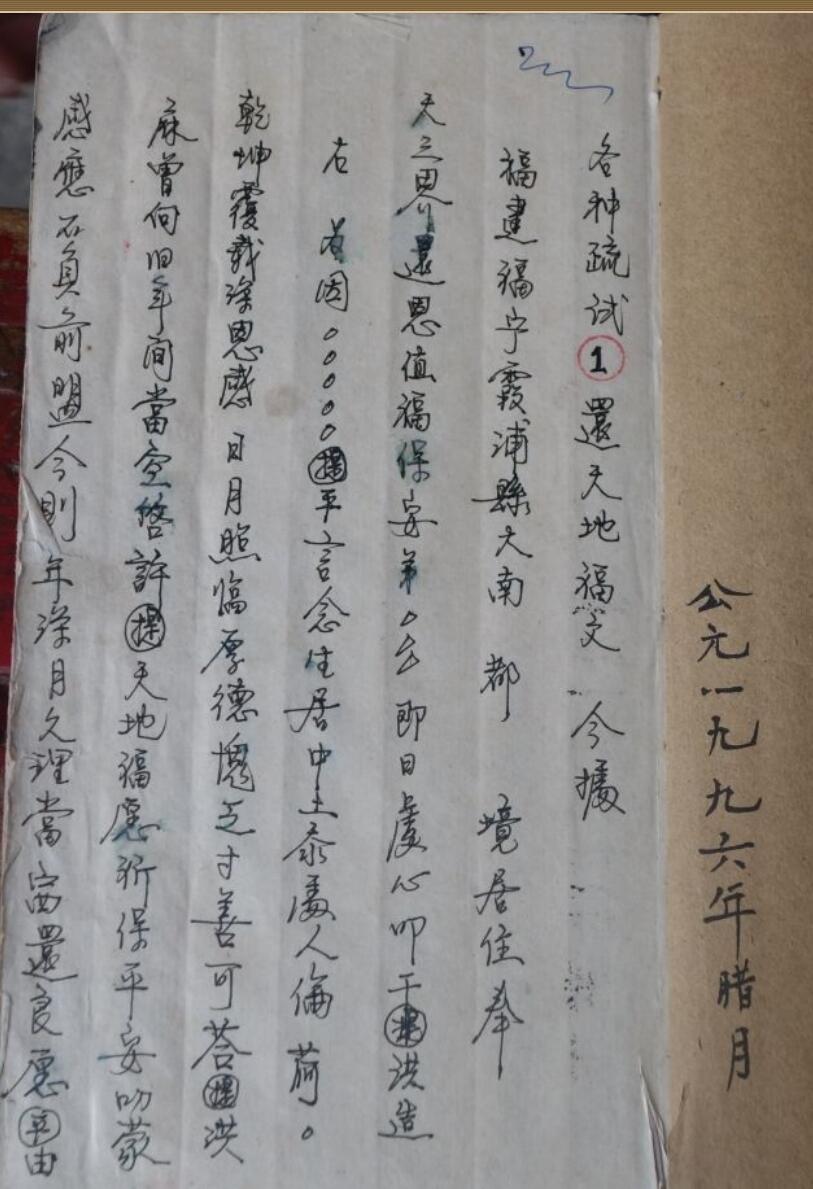 公元一九九六年腊月
各种疏试 1 還天地福文 今據
福建福宁霞浦縣大南 都 境居住奉
天三界還恩值福保安弟 。 厶 即日虔心叩干 洪造
右 者因 。。。。。 平 言念生居中土 忝處人倫 荷 。
乾坤覆載深恩感 日月照臨厚德愧乏寸善可荅 洪
庥曾向旧年间當空啓許 天地福愿祈保平安叻蒙
感應不負前盟今則 年深月久理當 還良愿 由